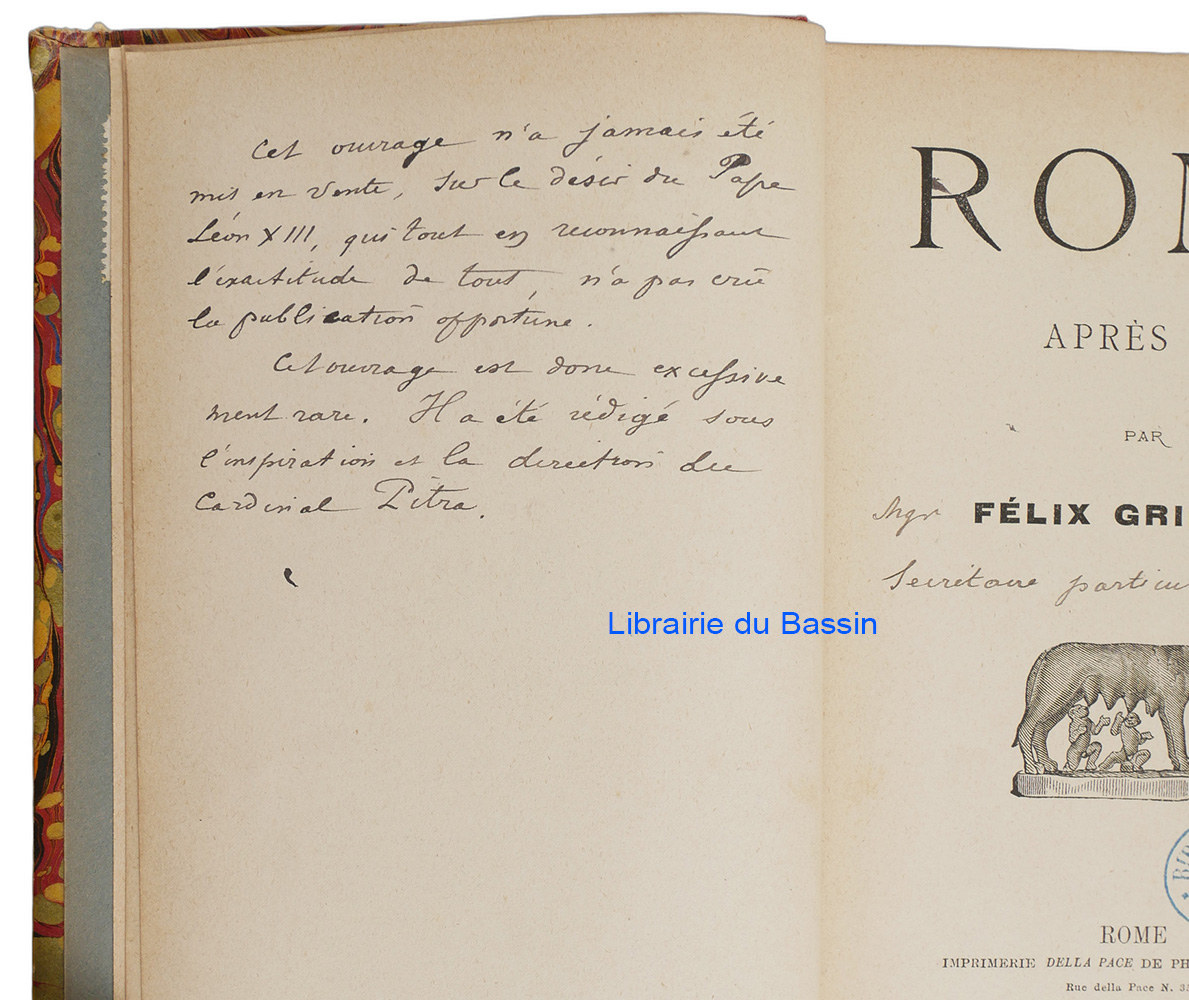 Cet ouvrage n'a jamais été
mis en vente, sur le désir du Pape
Léon XIII, qui tout en reconnaissant
l'exactitude de tout, n'a pas crû
la publication opportune.
Cet ouvrage est donc excessive
ment rare. Il a été rédigé sous
l'inspiration et la direction du
Cardinal Pitra.
ROM
APRÈS
PAR
Mgr FÉLIX GRI
Secrétaire particu
Librairie du Bassin
BIB
ROME
IMPRIMERIE DELLA PACE DE PH
Rue della Pace N. 35